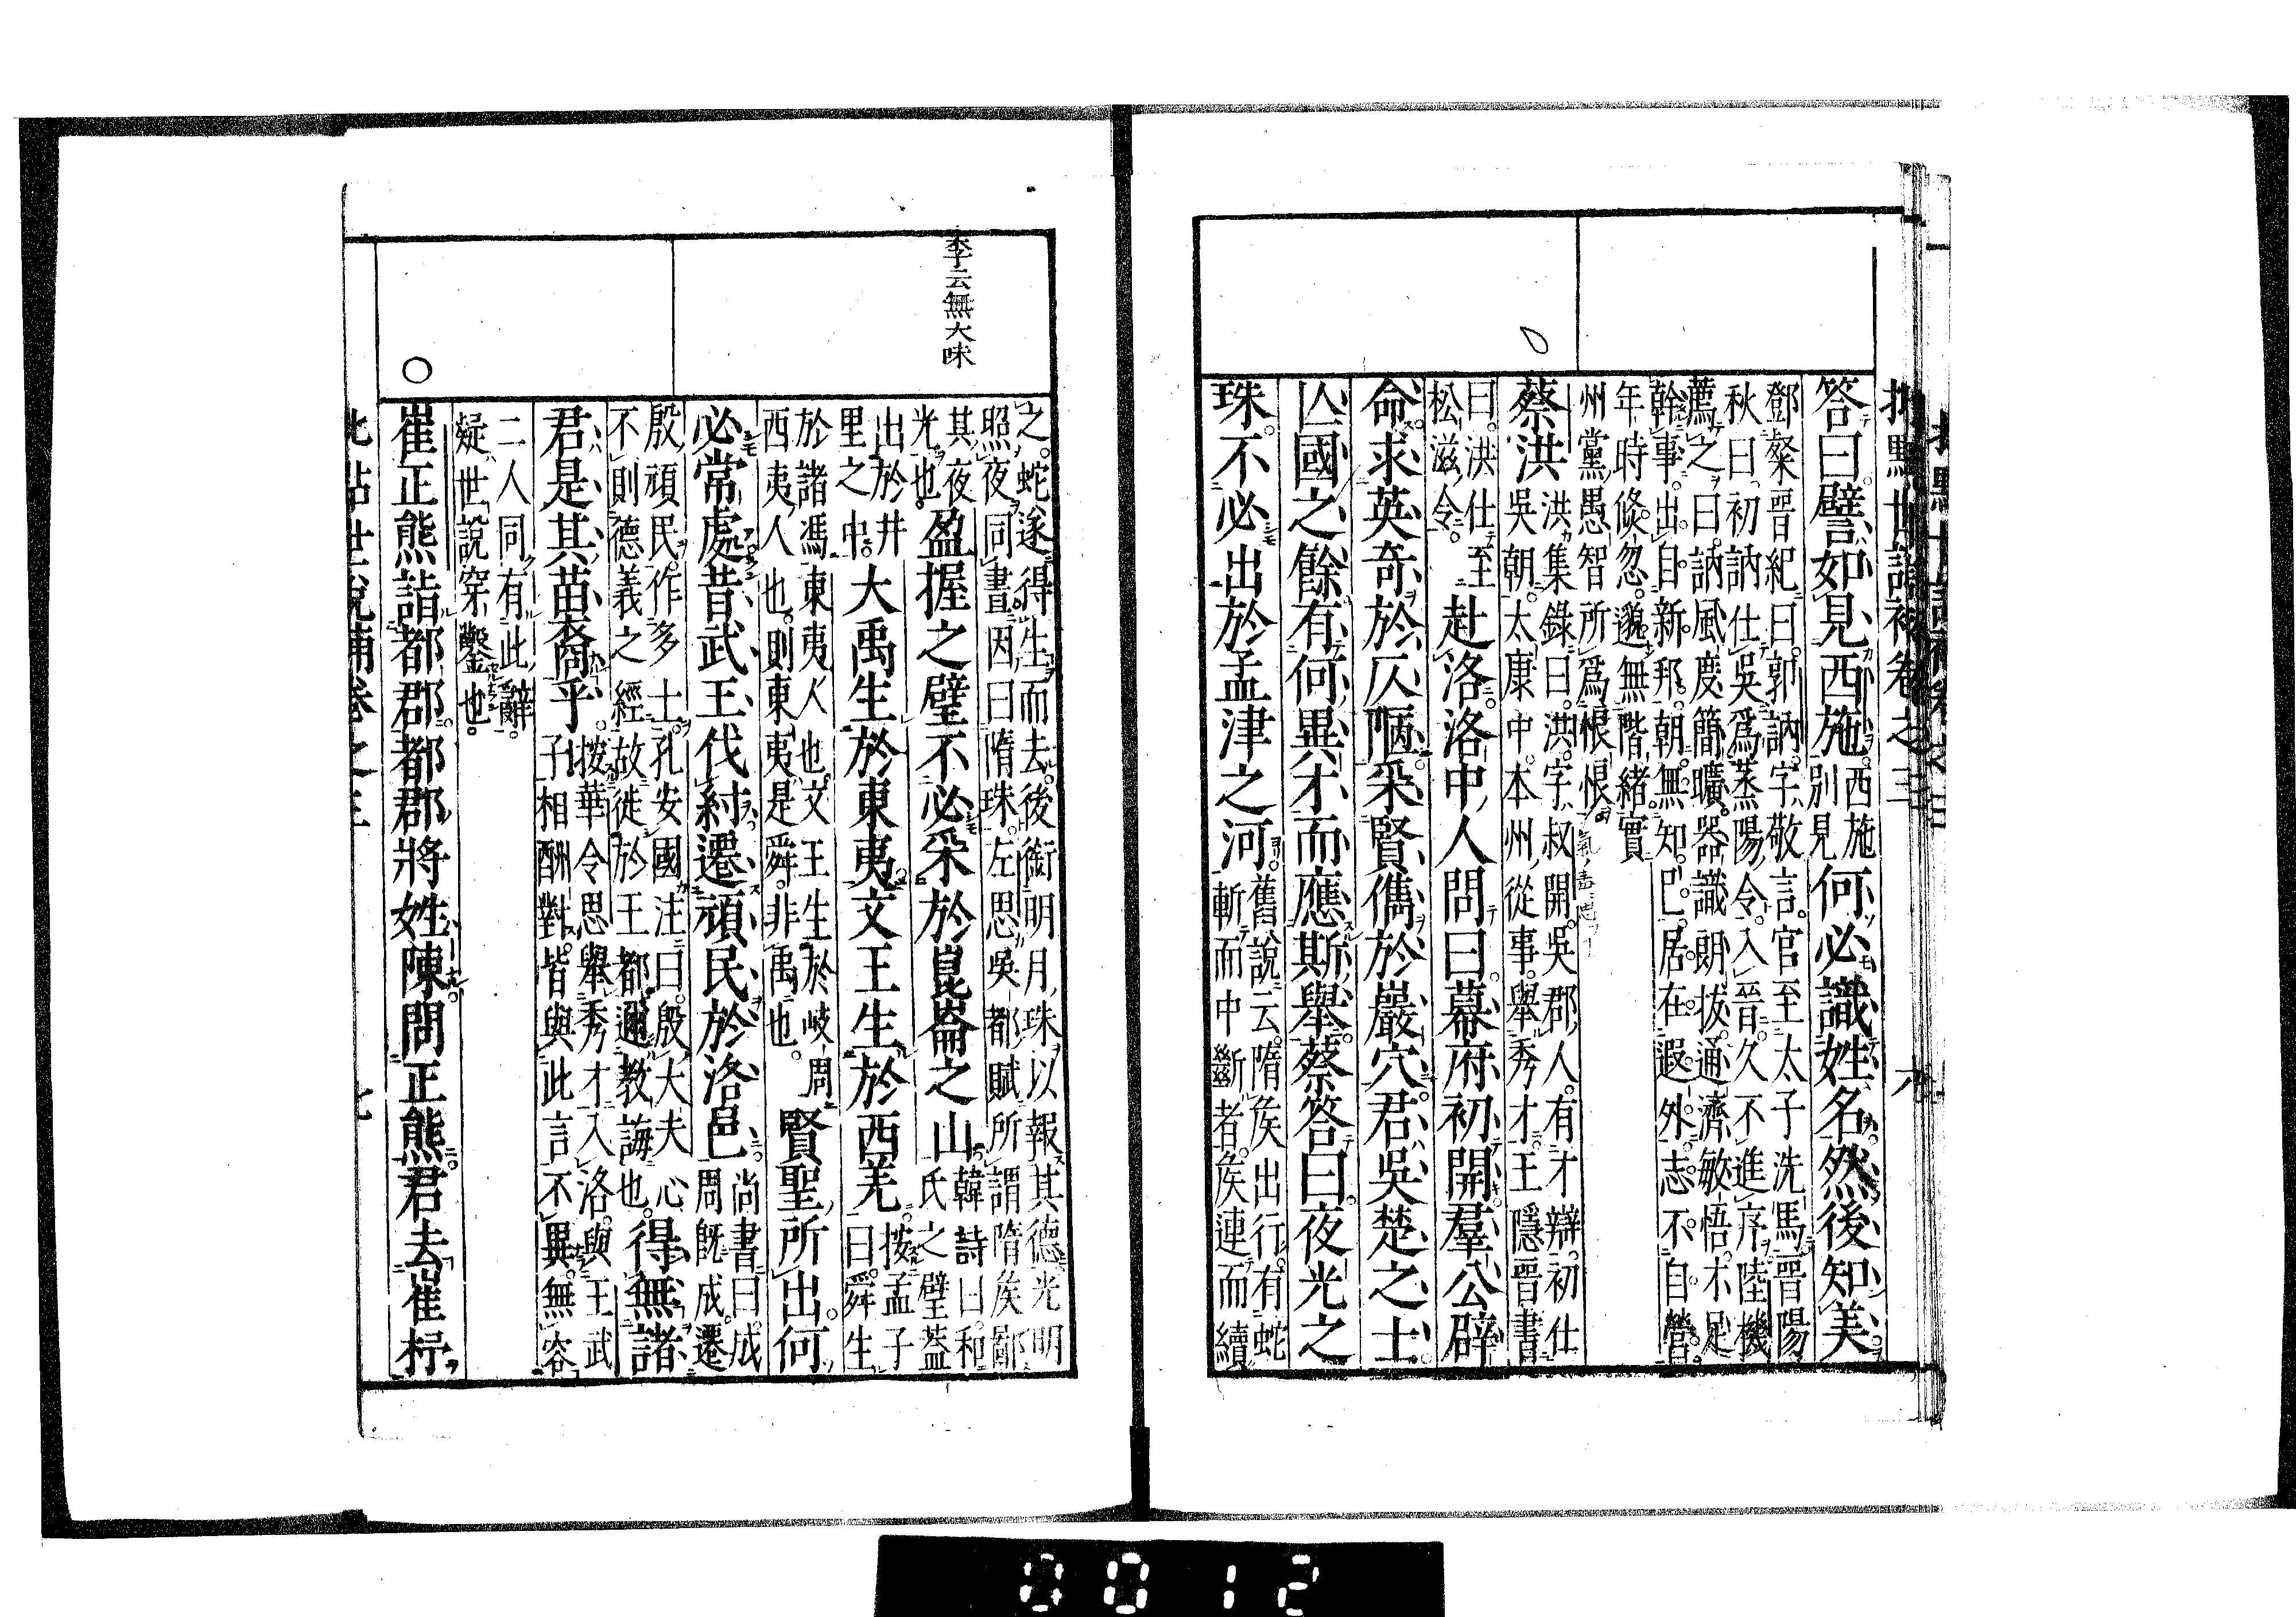 批點世說補卷之三 六
答曰譬如見西施西施別見何必識姓名然後知美
鄧粲晉紀曰郭訥字敬言官至太子洗馬晉陽
秋曰初訥仕吳爲蒸陽令入晉久不進序陸機
薦之曰訥風度簡曠器識朗拔通濟敏悟才足
幹事出自新邦朝無知己居在遐外志不自營
年時倏忽邈無階緒實
州黨愚智所爲恨恨
蔡洪洪集錄曰洪字叔開吳郡人有才辯初仕
吳朝太康中本州從事舉秀才王隱晉書
曰洪仕至
松滋令
赴洛洛中人問曰幕府初開羣公辟
命求英奇於仄陋采賢儁於巖穴君吳楚之士
亾國之餘有何異才而應斯舉蔡答曰夜光之
珠不必出於孟津之河舊說云隋矦出行有蛇
斬而中斷者矦連而續
李云無大味
之蛇遂得生而去後銜明月珠以報其德光明
照夜同晝因曰隋珠左思吳都賦所謂隋矦鄙
其夜
光也
盈握之璧不必采於崑崙之山韓詩曰和
氏之璧蓋
出於井
里之中
大禹生於東夷文王生於西羌按孟子
曰舜生
於諸馮東夷人也文王生於岐周
西夷人也則東夷是舜非禹也
賢聖所出何
必常處昔武王伐紂遷頑民於洛邑尚書曰成
周旣成遷
殷頑民作多士孔安國注曰殷大夫心
不則德義之經故徙於王都邇教誨也
得無諸
君是其苗裔乎按華令思舉秀才入洛與王武
子相酬對皆與此言不異無容
二人同有此辭
疑世說穿鑿也
○
崔正熊詣都郡都郡將姓陳問正熊君去崔杼
批點世說補卷之三 七
0012